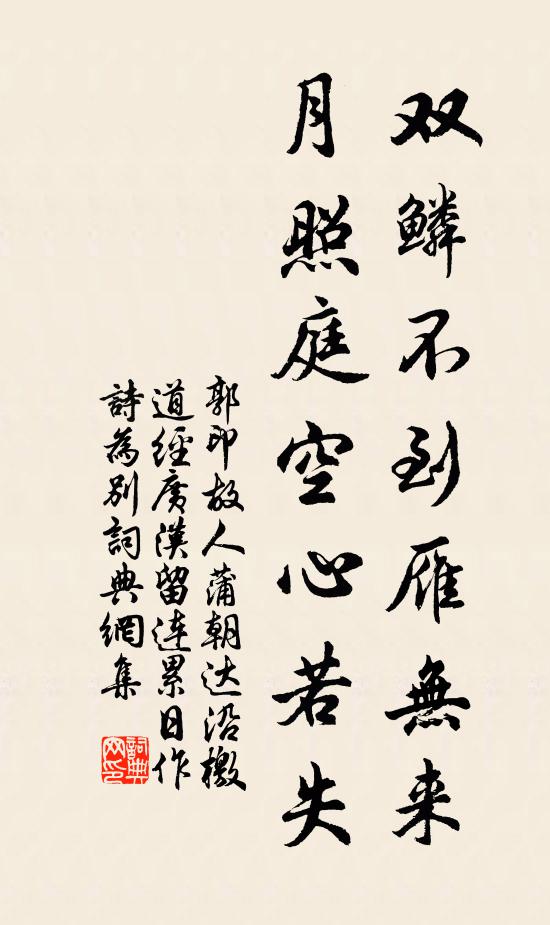 双鳞不到雁無来
月照庭空心若失
郭印故人蒲朝达沿檄
道經廣漢留连累日作
詩為别詞典網集
詞典网印